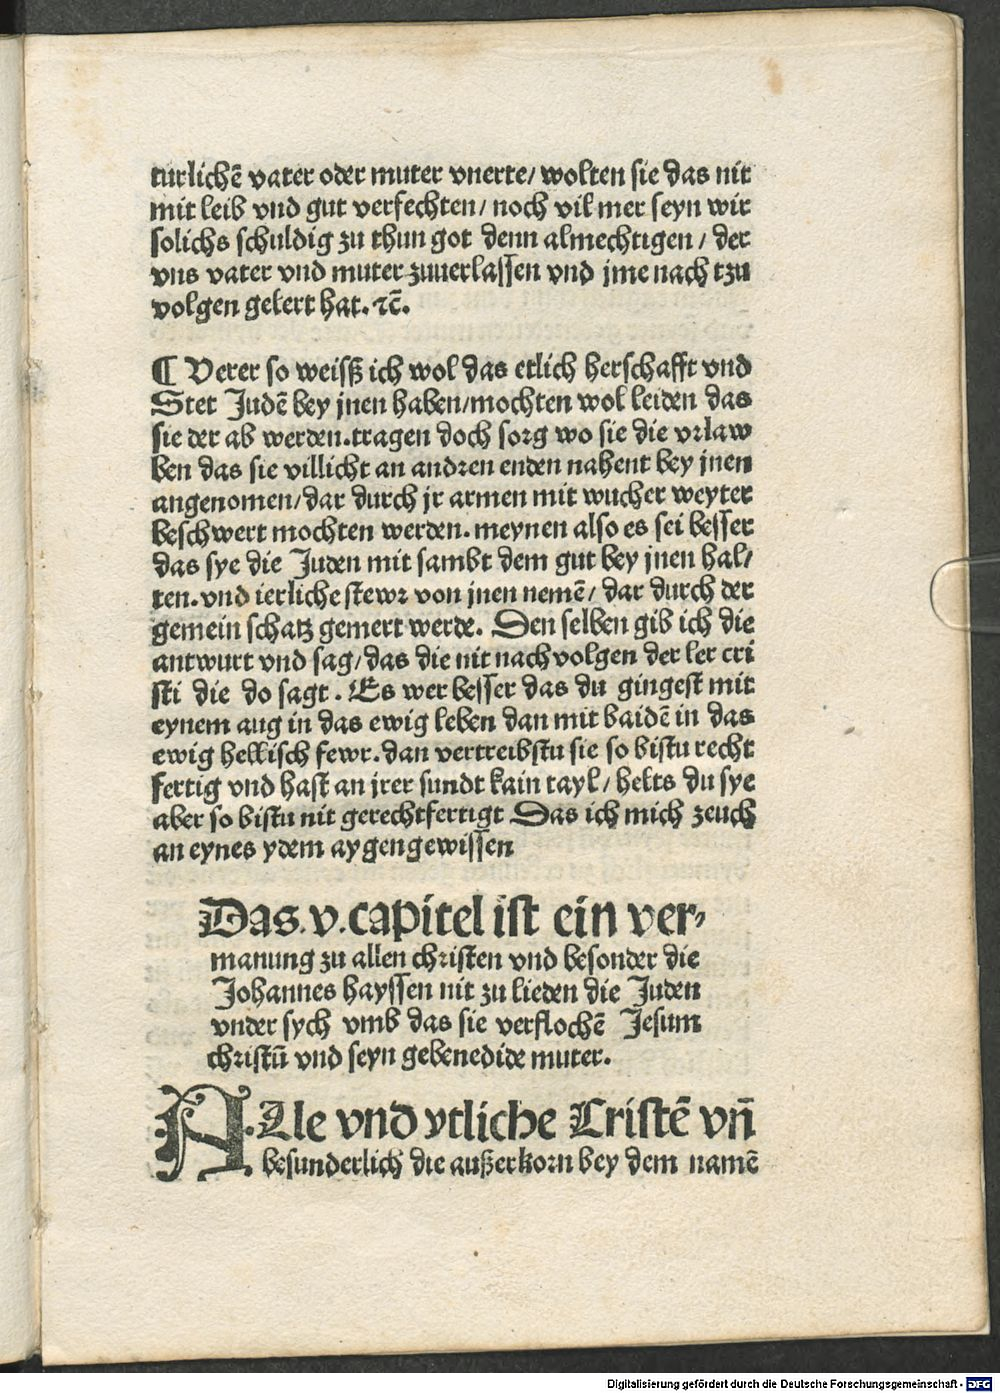 turlichē vater oder muter vnerte/ wolten sie das nit
mit leib vnd gut verfechten/ noch vil mer seyn wir
solichs schuldig zu thun got denn almechtigen/ der
vns vater vnd muter zuuerlassen vnd jme nach tzu
volgen gelert hat. ⁊c̄.
¶ Verer so weiß ich wol das etlich herschafft vnd
Stet Judē bey jnen haben/mochten wol leiden das
sie der ab werden.tragen doch sorg wo sie die vrlaw
ben das sie villicht an andren enden nahent bey jnen
angenomen/dar durch jr armen mit wucher weyter
beschwert mochten werden. meynen also es sei besser
das sye die Juden mit sambt dem gut bey jnen hal/
ten.vnd ierliche stewr von jnen nemē/ dar durch der
gemein schatz gemert werde. Den selben gib ich die
antwurt vnd sag/das die nit nachvolgen der ler cri
sti die do sagt. Es wer besser das du gingest mit
eynem aug in das ewig leben dan mit baidē in das
ewig hellisch fewr.dan vertreibstu sie so bistu recht
fertig vnd hast an jrer sundt kain tayl/ helts du sye
aber so bistu nit gerechtfertigt Das ich mich zeuch
an eynes ydem aygen gewissen
Das.v.capitel ist ein ver-
manung zu allen christen vnd besonder die
Johannes hayssen nit zu lieden die Juden
vnder sych vmb das sie verflochē Jesum
christū vnd seyn gebenedide muter.
ALle vnd ytliche Cristē vn̄
besunderlich die außerkorn bey dem namē
Digitalisierung gefördert durch die Deutsche Forschungsgemeinschaft - DFG